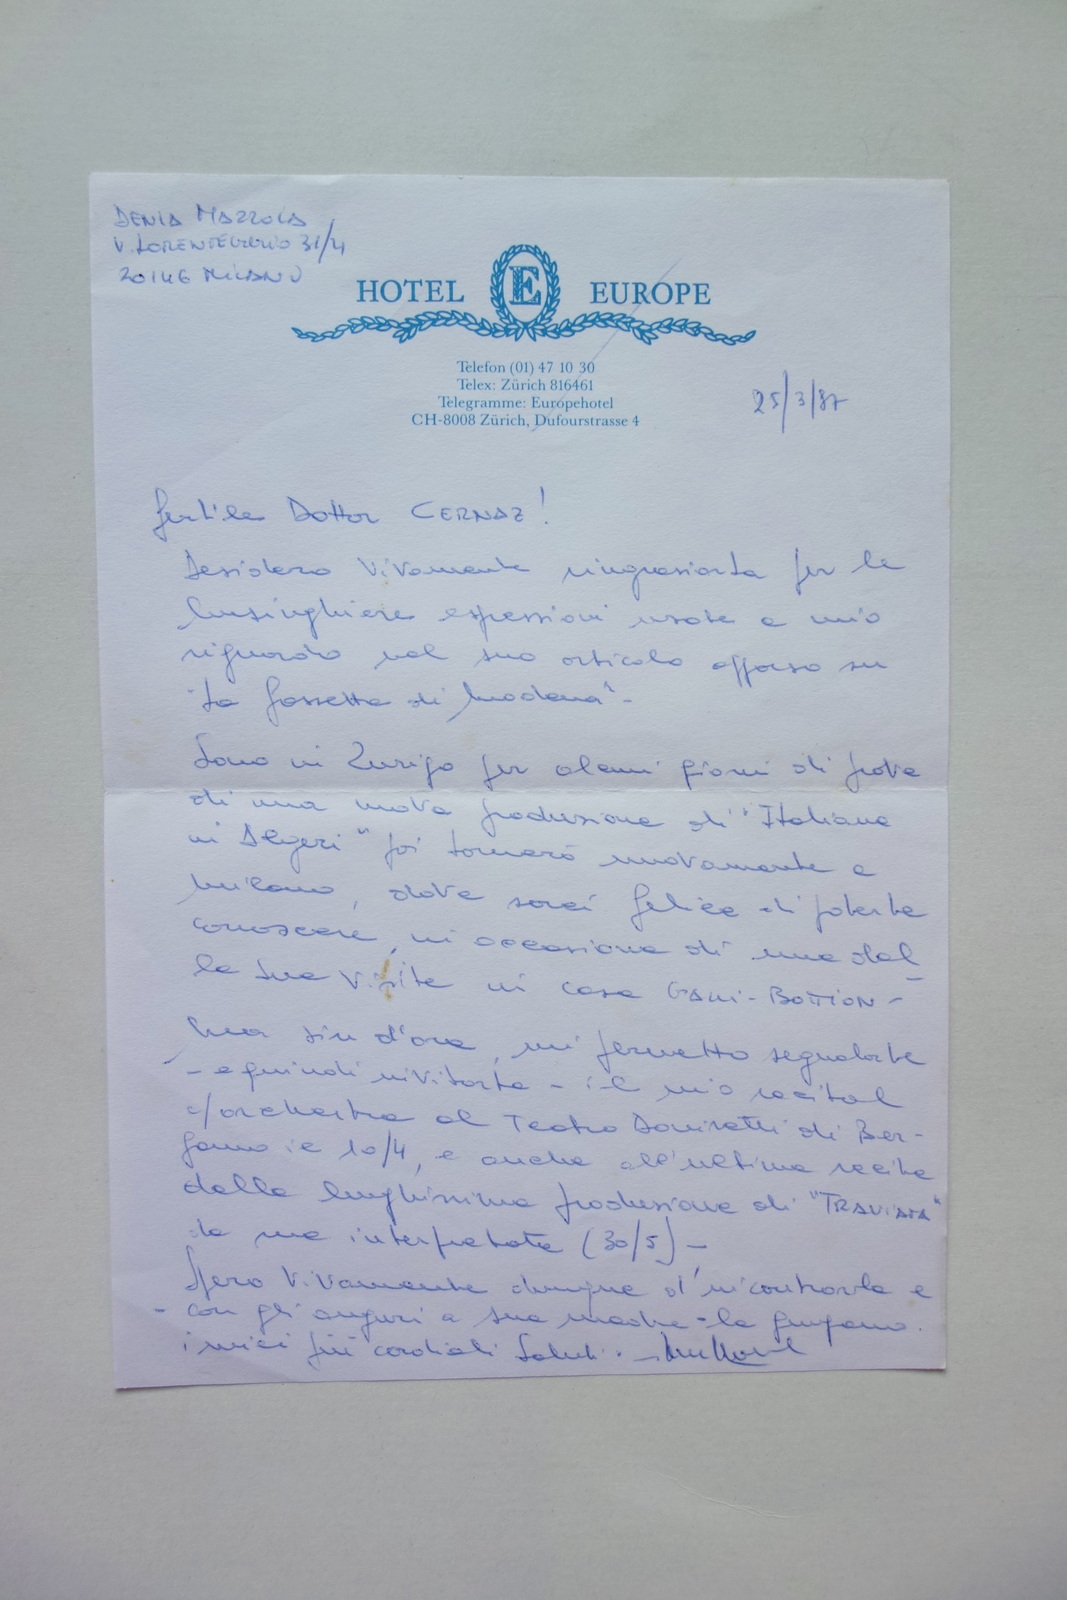 DENIA MAZZOLA
V. LORENTEGGIO 31/4
20146 MILANO
HOTEL E EUROPE
Telefon (01) 47 10 30
Telex: Zürich 816461
Telegramme: Europehotel
CH-8008 Zürich, Dufourstrasse 4
25/3/87
Gentile Dottor CERNAZ!
Desidero vivamente ringraziarla per le
lusinghiere espressioni usate a mio
riguardo nel suo articolo apparso su
"La Gazzetta di Modena"-
Sono in Zurigo per alcuni giorni di prova
di una nuova produzione di "Italiana
in Algeri" poi tornerò nuovamente a
Milano, dove sarei felice di poterla
conoscere, in occasione di una del_
le sue visite in casa GALLI-BOTTION-
Ma sin d'ora, mi permetto segnalarle
- e quindi invitarla - il mio recital
c/orchestra al Teatro Donizetti di Ber-
gamo il 10/4, e anche all'ultima recita
della lunghissima produzione di "TRAVIATA"
da me interpretata (30/5)-
Spero vivamente dunque d'incontrarla e
- con gli auguri a sua madre - le giungano
i miei più cordiali saluti.